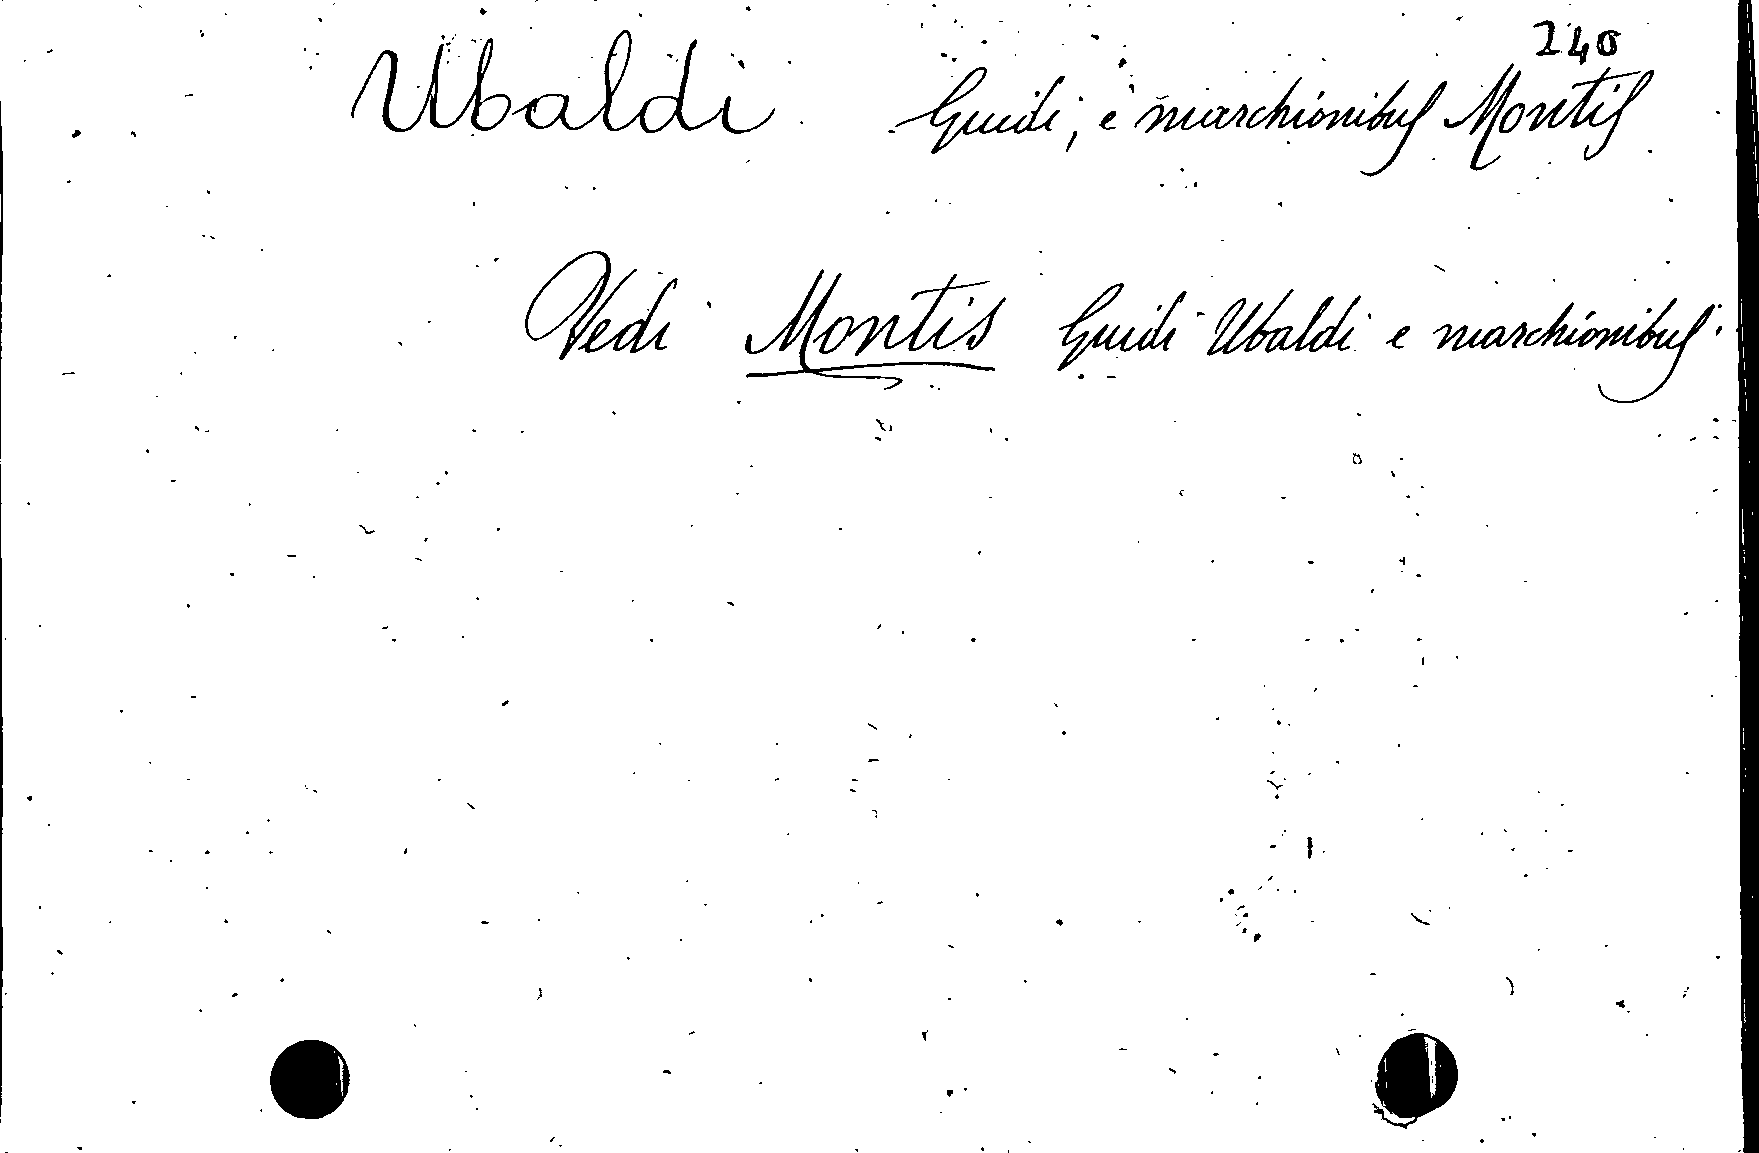 240
Ubaldi Guidi, e marchionibus Montis
Vedi Montis Guidi Ubaldi e marchionibus